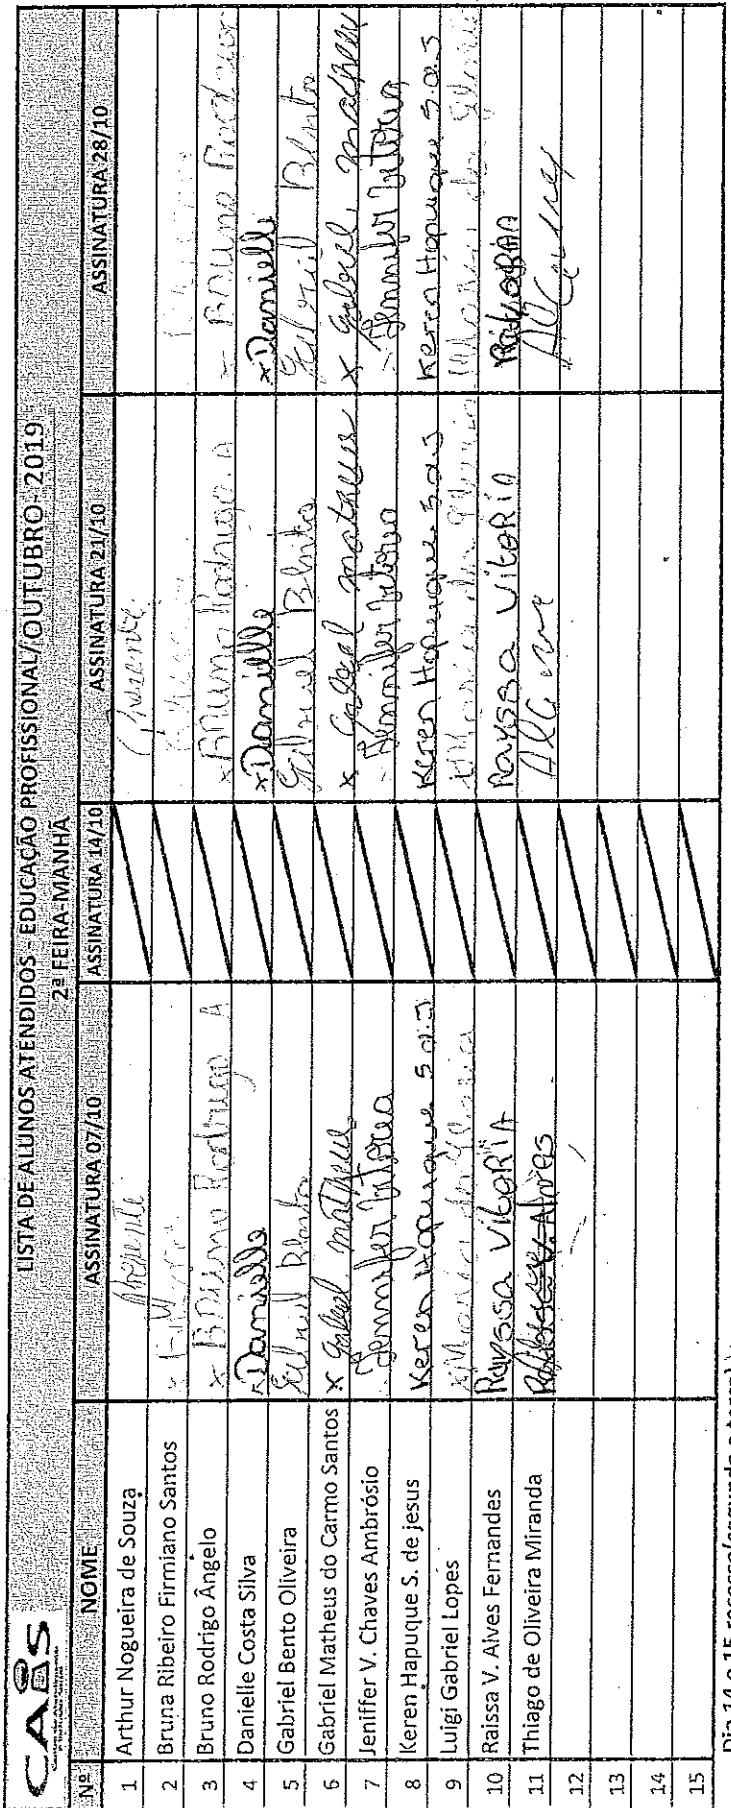 CAIS
LISTA DE ALUNOS ATENDIDOS - EDUCAÇÃO PROFISSIONAL/OUTUBRO- 2019
2ª FEIRA-MANHÃ
Nº NOME ASSINATURA 07/10 ASSINATURA 14/10 ASSINATURA 21/10 ASSINATURA 28/10
1 Arthur Nogueira de Souza
2 Bruna Ribeiro Firmiano Santos
3 Bruno Rodrigo Ângelo x Bruno Rodrigo A x Bruno Rodrigo. A - Bruno
4 Danielle Costa Silva x Danielle x Danielle x Danielle
5 Gabriel Bento Oliveira Gabriel Bento Gabriel Bento Gabriel Bento
6 Gabriel Matheus do Carmo Santos x Gabriel matheus x Gabriel matheus x Gabriel matheus
7 Jeniffer V. Chaves Ambrósio Jennifer Jennifer Jennifer
8 Keren Hapuque S. de jesus Keren Hapuque S. Keren Hapuque S. Keren Hapuque S.
9 Luigi Gabriel Lopes Maria da Gloria Maria da Gloria Maria da Gloria
10 Raissa V. Alves Fernandes Rayssa VitoRiA Rayssa VitoRiA
11 Thiago de Oliveira Miranda
12
13
14
15
Dia 14 e 15 recesso(segunda e terça)